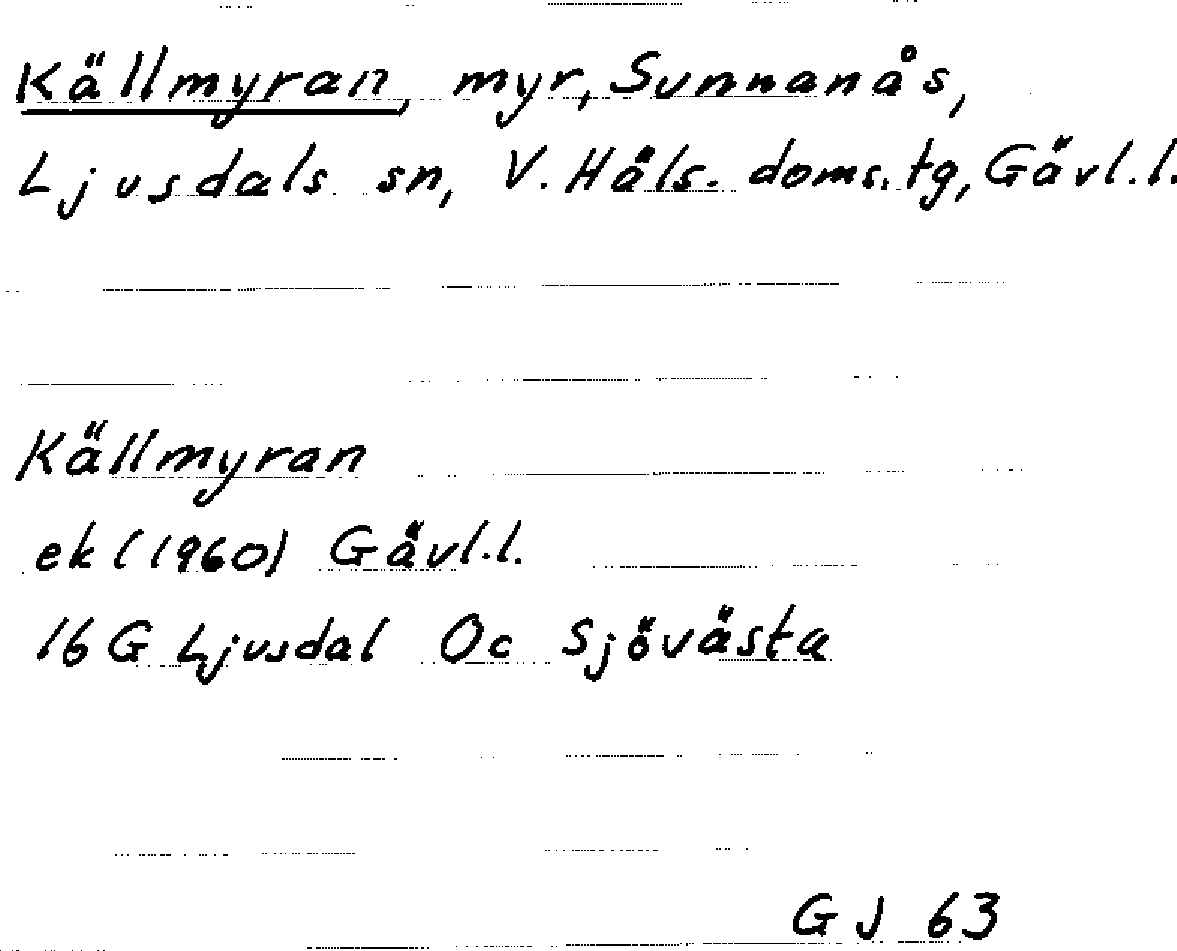 Källmyran, myr, Sunnanås,
Ljusdals sn, V. Häls. doms.tg, Gävl.l.
Källmyran
ek (1960) Gävl.l.
16 G Ljusdal Oc Sjövästa
G J 63